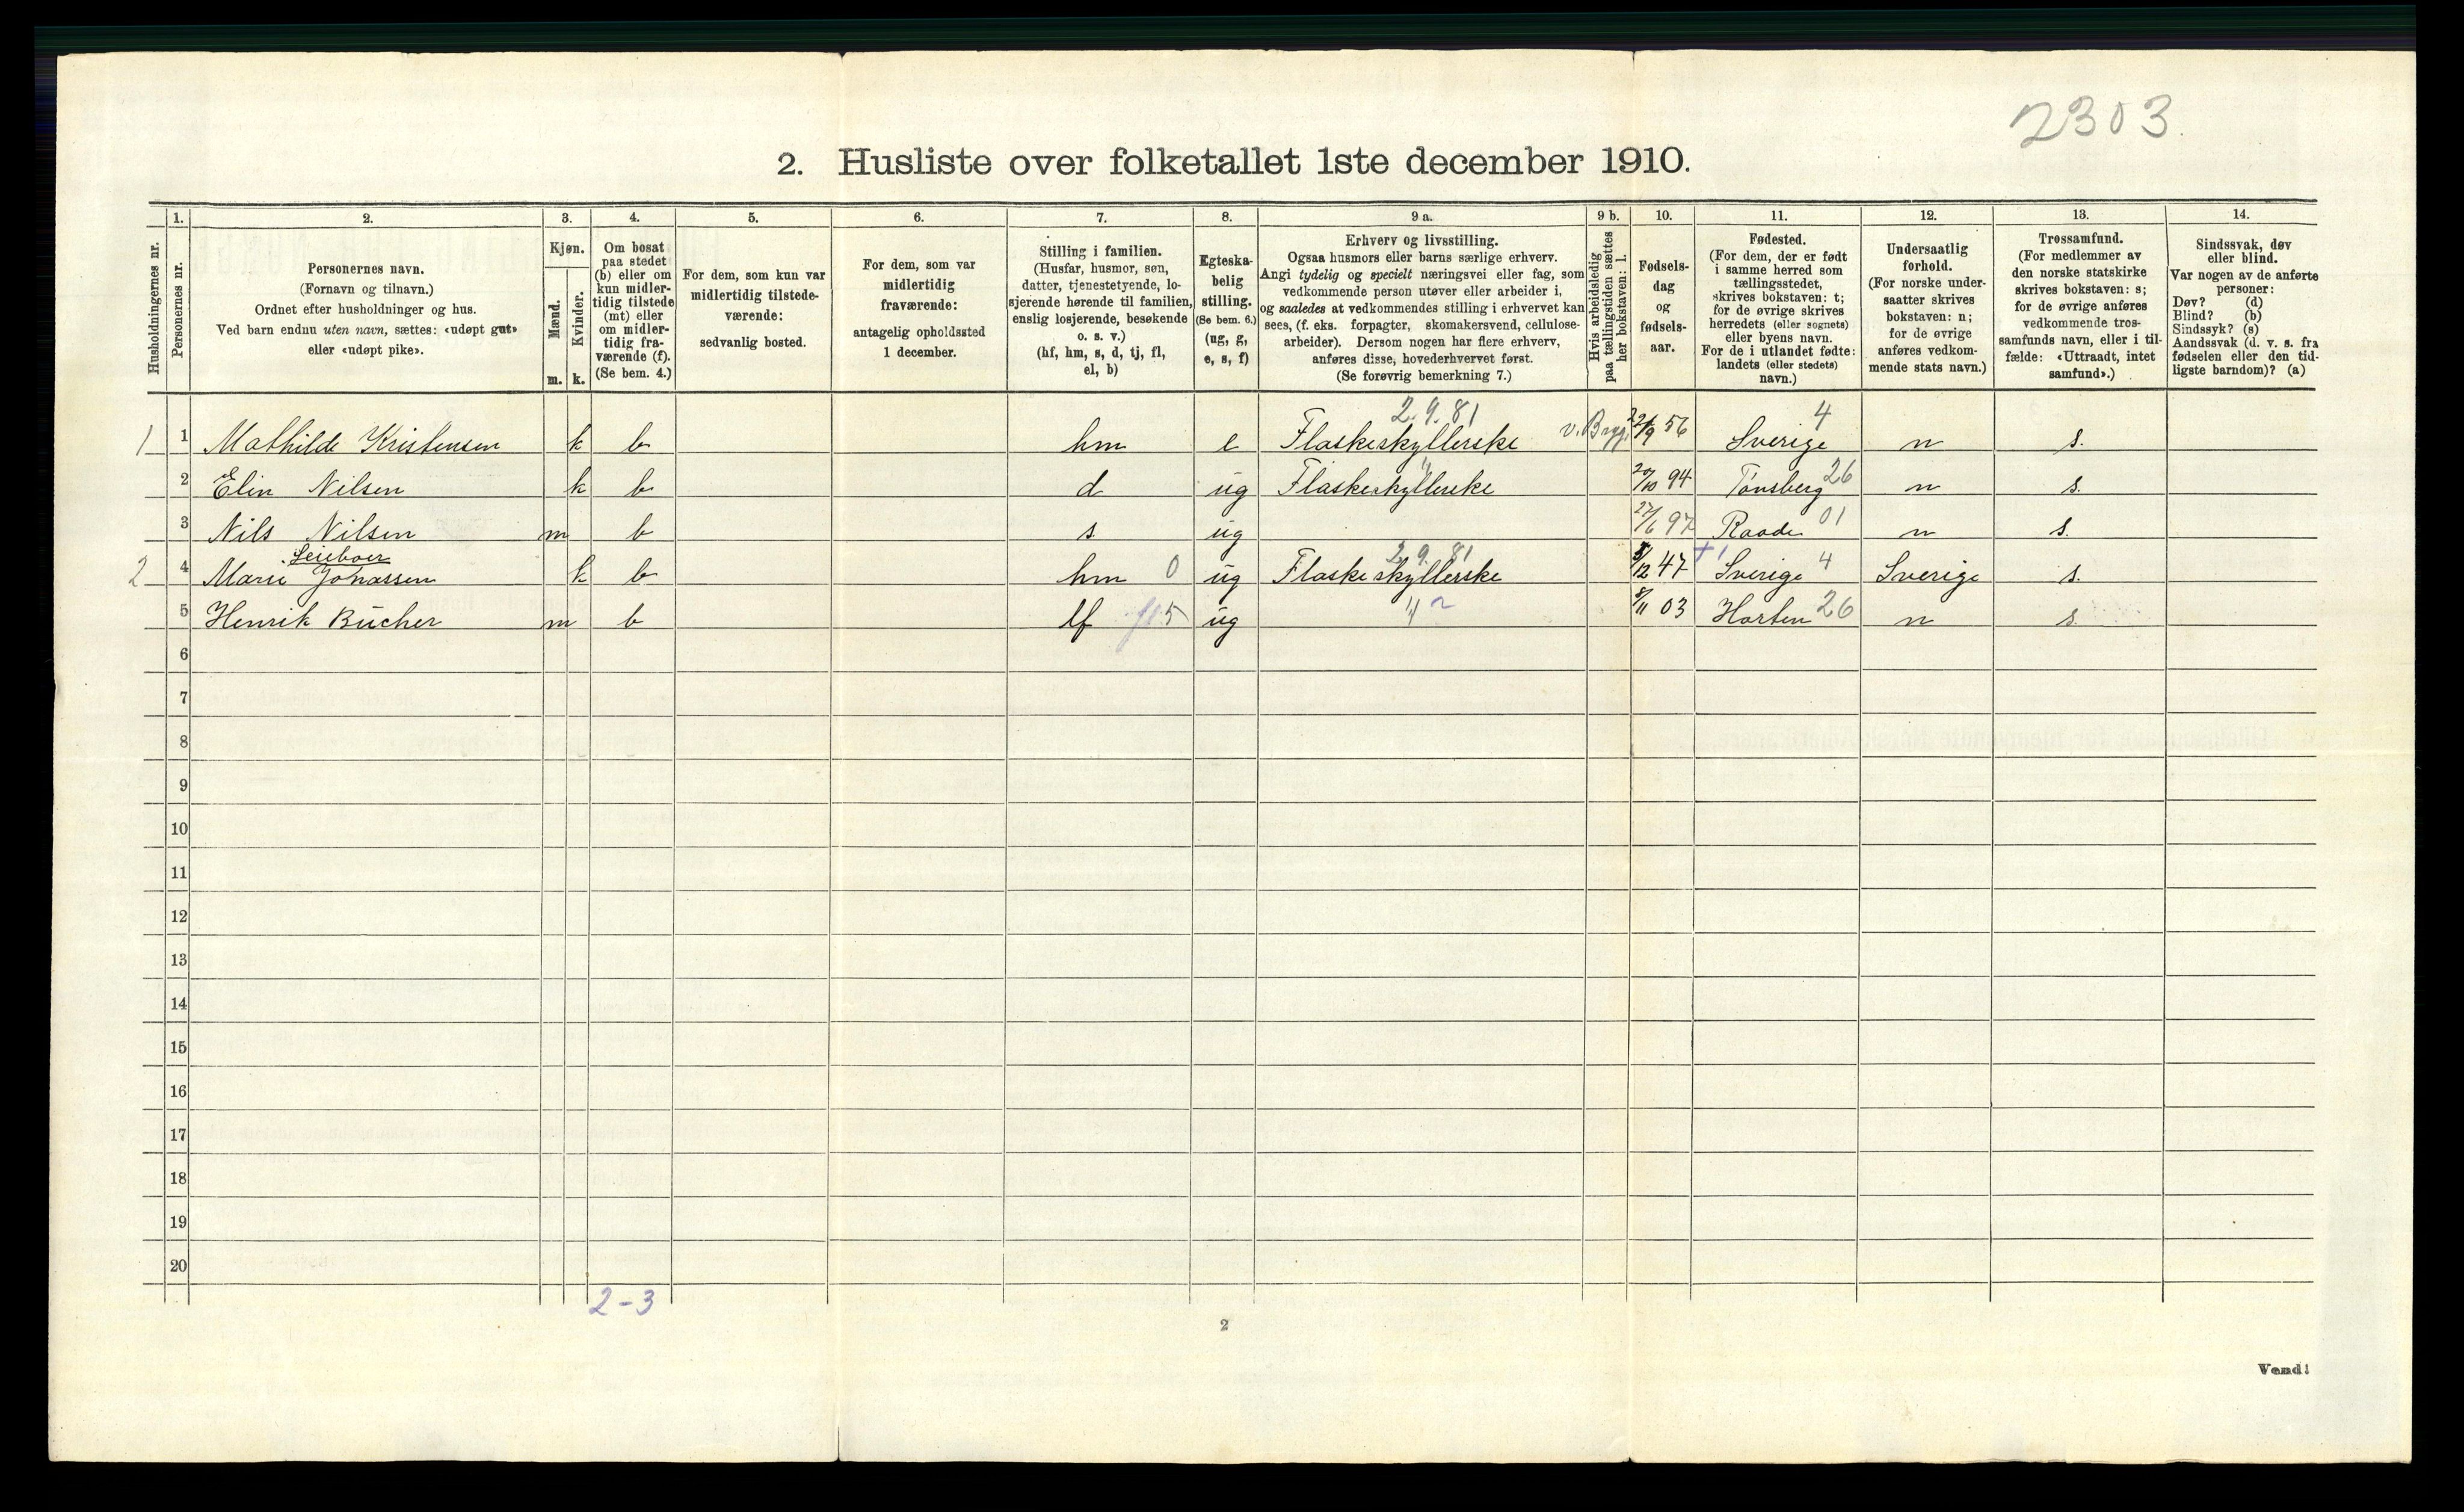 2303
2. Husliste over folketallet 1ste december 1910.
Husholdningernes nr.
1.
Personernes nr.
2.
Personernes navn.
(Fornavn og tilnavn.)
Ordnet efter husholdninger og hus.
Ved barn endnu uten navn, sættes: «udøpt gut»
eller «udøpt pike».
3.
Kjøn.
Mænd.
Kvinder.
m.
k.
4.
Om bosat
paa stedet
(b) eller om
kun midler-
tidig tilstede
(mt) eller
om midler-
tidig fra-
værende (f).
(Se bem. 4.)
5.
For dem, som kun var
midlertidig tilstede-
værende:
sedvanlig bosted.
6.
For dem, som var
midlertidig
fraværende:
antagelig opholdssted
1 december.
7.
Stilling i familien.
(Husfar, husmor, søn,
datter, tjenestetyende, lo-
sjerende hørende til familien,
enslig losjerende, besøkende
o. s. v.)
(hf, hm, s, d, tj, fl,
el, b)
8.
Egteska-
belig
stilling.
(Se bem. 6.)
(ug, g,
e, s, f)
9 a.
Erhverv og livsstilling.
Ogsaa husmors eller barns særlige erhverv.
Angi tydelig og specielt næringsvei eller fag, som
vedkommende person utøver eller arbeider i,
og saaledes at vedkommendes stilling i erhvervet kan
sees, (f. eks. forpagter, skomakersvend, cellulose-
arbeider). Dersom nogen har flere erhverv,
anføres disse, hovederhvervet først.
(Se forøvrig bemerkning 7.)
9 b.
Hvis arbeidsledig
paa tællingstiden sættes
her bokstaven: l.
10.
Fødsels-
dag
og
fødsels-
aar.
11.
Fødested.
(For dem, der er født
i samme herred som
tællingsstedet,
skrives bokstaven: t;
for de øvrige skrives
herredets (eller sognets)
eller byens navn.
For de i utlandet fødte:
landets (eller stedets)
navn.)
12.
Undersaatlig
forhold.
(For norske under-
saatter skrives
bokstaven: n;
for de øvrige
anføres vedkom-
mende stats navn.)
13.
Trossamfund.
(For medlemmer av
den norske statskirke
skrives bokstaven: s;
for de øvrige anføres
vedkommende tros-
samfunds navn, eller i til-
fælde: «Uttraadt, intet
samfund».)
14.
Sindssvak, døv
eller blind.
Var nogen av de anførte
personer:
Døv? (d)
Blind? (b)
Sindssyk? (s)
Aandssvak (d. v. s. fra
fødselen eller den tid-
ligste barndom)? (a)
2.9.81 4
1 1 Mathilde Kristensen k b hm e Flaskeskyllerske v. Bryg. 22/9 56 Sverige n s.
2 Elin Nilsen k b d ug Flaskeskyllerske 20/10 94 Tønsberg 26 n s.
3 Nils Nilsen m b s ug 27/6 97 Raade 01 n s.
Leieboer 2.9.81
2 4 Marie Jonassen k b hm 0 ug Flaskeskyllerske 8/12 47 Sverige 4 Sverige s.
5 Henrik Bücher m b lf 5 ug 4 8/11 03 Horten 26 n s.
6
7
8
9
10
11
12
13
14
15
16
17
18
19
20
2-3
2
Vend!